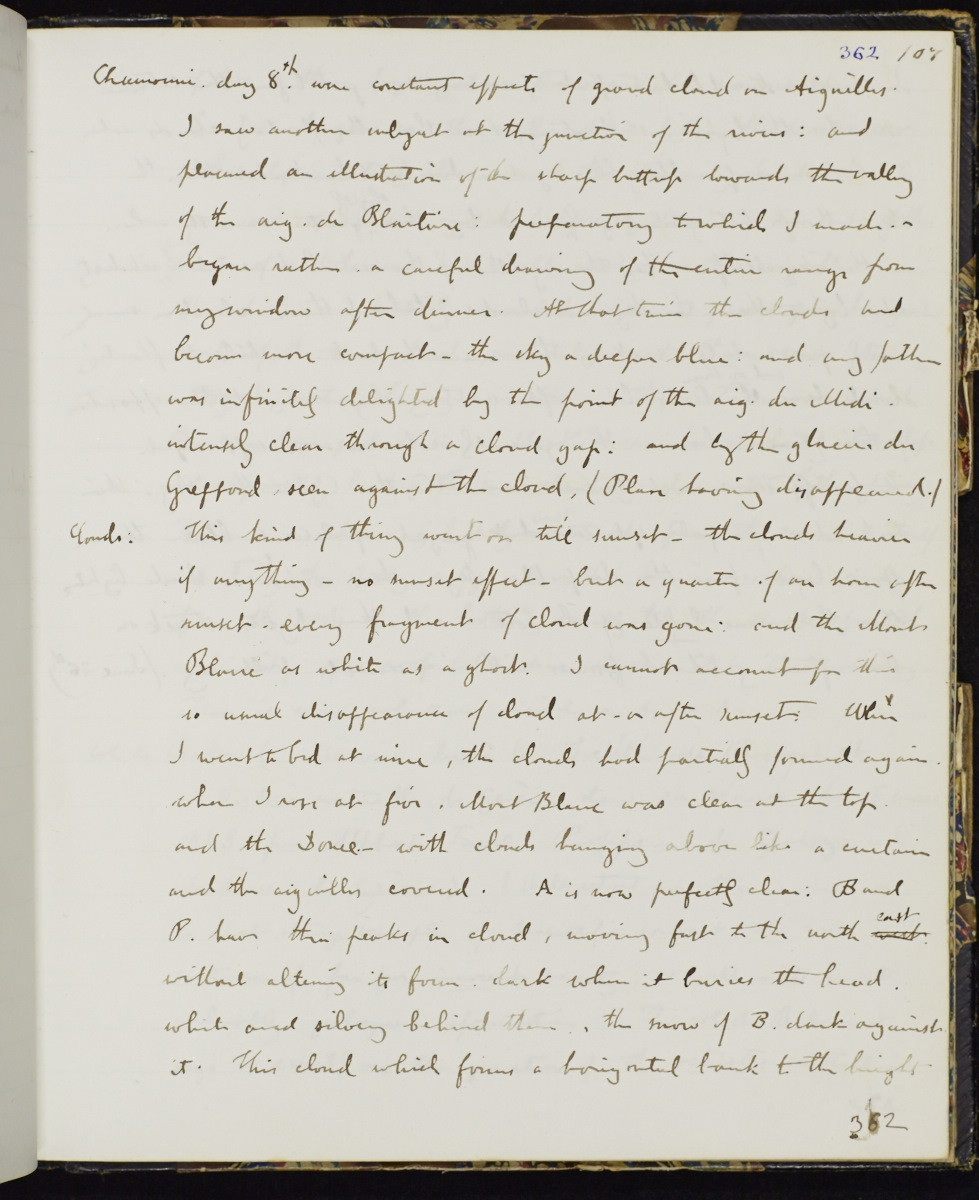 362 107
Chamouni. day 8th. were constant effects of grand cloud on Aiguilles.
I saw another at the junction of the rivers: and
planned an illustration of the sharp buttress towards the valley
of the aig. de Blaitiere: preparatory to which I made. -
began rather. a careful drawing of the entire range from
my window after dinner. At that time the clouds had
become more compact - the sky a deeper blue: and my father
was infinitely delighted by the point of the aig. du Midi.
intensely clear through a cloud gap: and by the glacier du
Greppond, seen against the cloud, (Plan having disappeared.)
Clouds: This kind of thing went on till sunset - the clouds heavier
if anything - no sunset effect - but a quarter of an hour after
sunset. every fragment of cloud was gone: and the Mont
Blanc as white as a ghost. I cannot account for this
so usual disappearance of cloud at - or after sunset: When
I went to bed at nine, the clouds had partially formed again.
when I rose at five. Mont Blanc was clear at the top.
and the Dome - with clouds hanging above like a curtain
and the aiguilles covered. A is now perfectly clear: B and
P. have their peaks in cloud, moving fast to the north east west.
without altering its form. dark when it buries the head.
white and silvery behind them, the snow of B. dark against
it. This cloud which forms a horizontal bank to the height
362